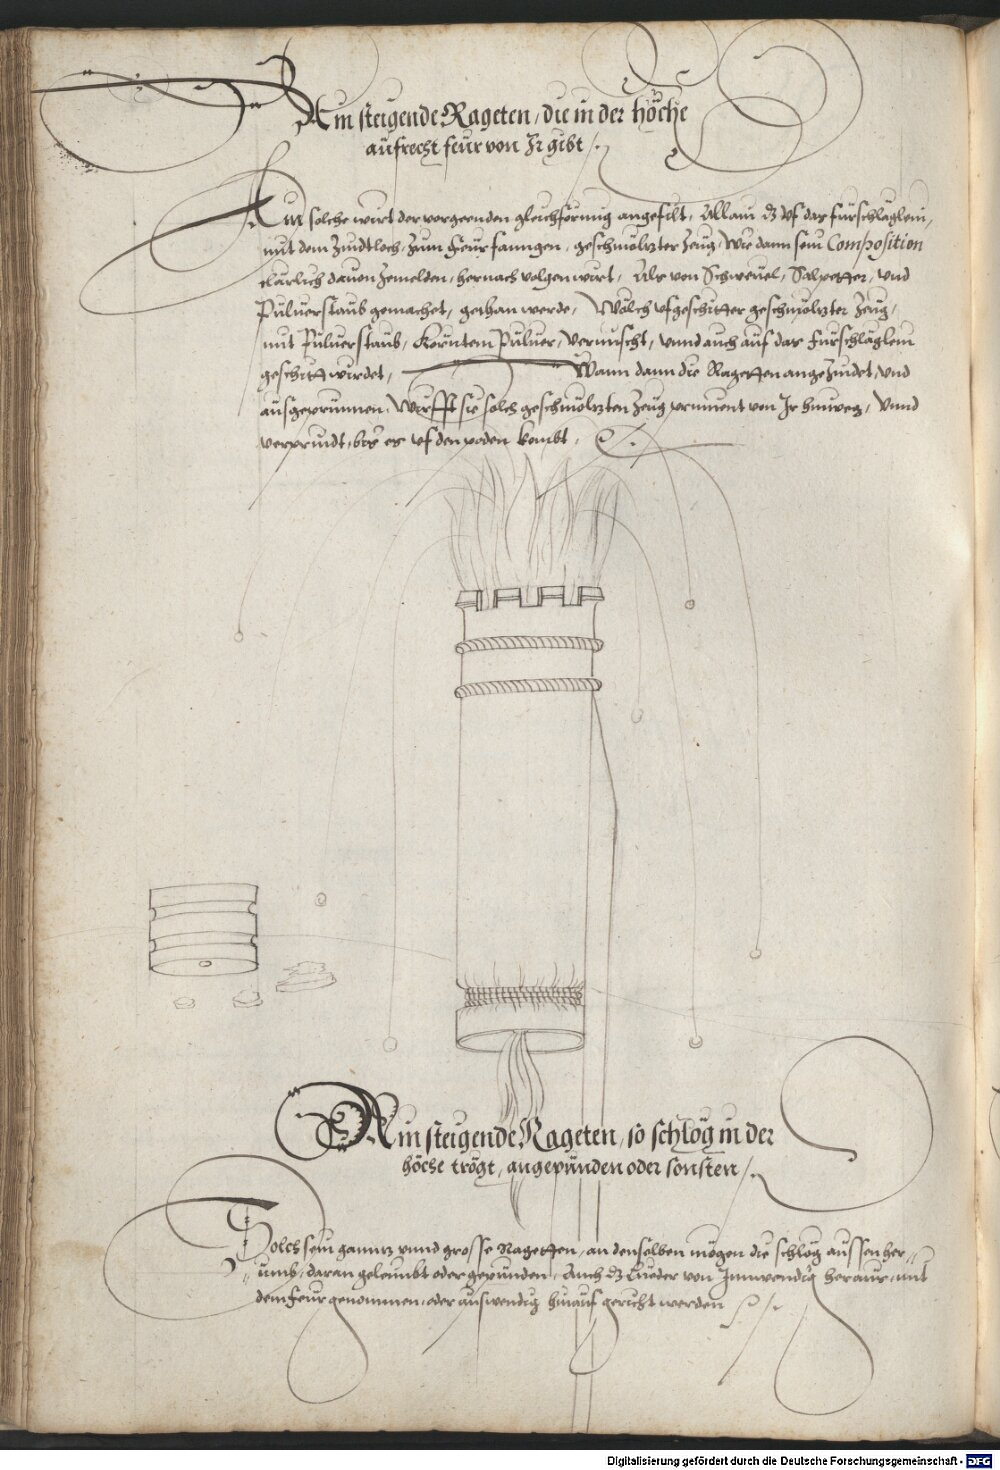 Ain steigende Rageten, die in der höche
aufrecht feur von Ir gibt /.
Ain solche wirt der vorgeenden gleichförmig angefilt, Allain dz uf das fürschläglein,
mit dem Zindtloch, Zum Feur fanngen, geschmöltzter Zeug, Wie dann sein Composition
clärlich davon Zemelden, hernach volgen wirt, Als von Schwevel, Salpetter, und
Pulverstaub gemachet, gethan werde, Wölch ufgeschitter geschmöltzter Zeug,
mit Pulverstaub, Körntem Pulver, vermischt, unnd auch auf das Fürschläglein
geschitt wirdet, Wann dann die Ragetten angezindet, und
ausgeprunnen, Würfft sie solch geschmöltzten Zeug prinnent von Ir hinweg, Unnd
verprindt, bis es uf den poden kombt,
Ain steigende Rageten, so schlög in der
höche trögt, angepünden oder sonsten /.
Solch sein ganntz unnd grosse Ragetten, an denselben mögen die schlög aussen her
umb, daran geleimbt oder gepünden, Auch dz Lueder von Innwendig heraus, mit
dem feur genommen, oder auswendig hinauf gericht werden
Digitalisierung gefördert durch die Deutsche Forschungsgemeinschaft - DFG